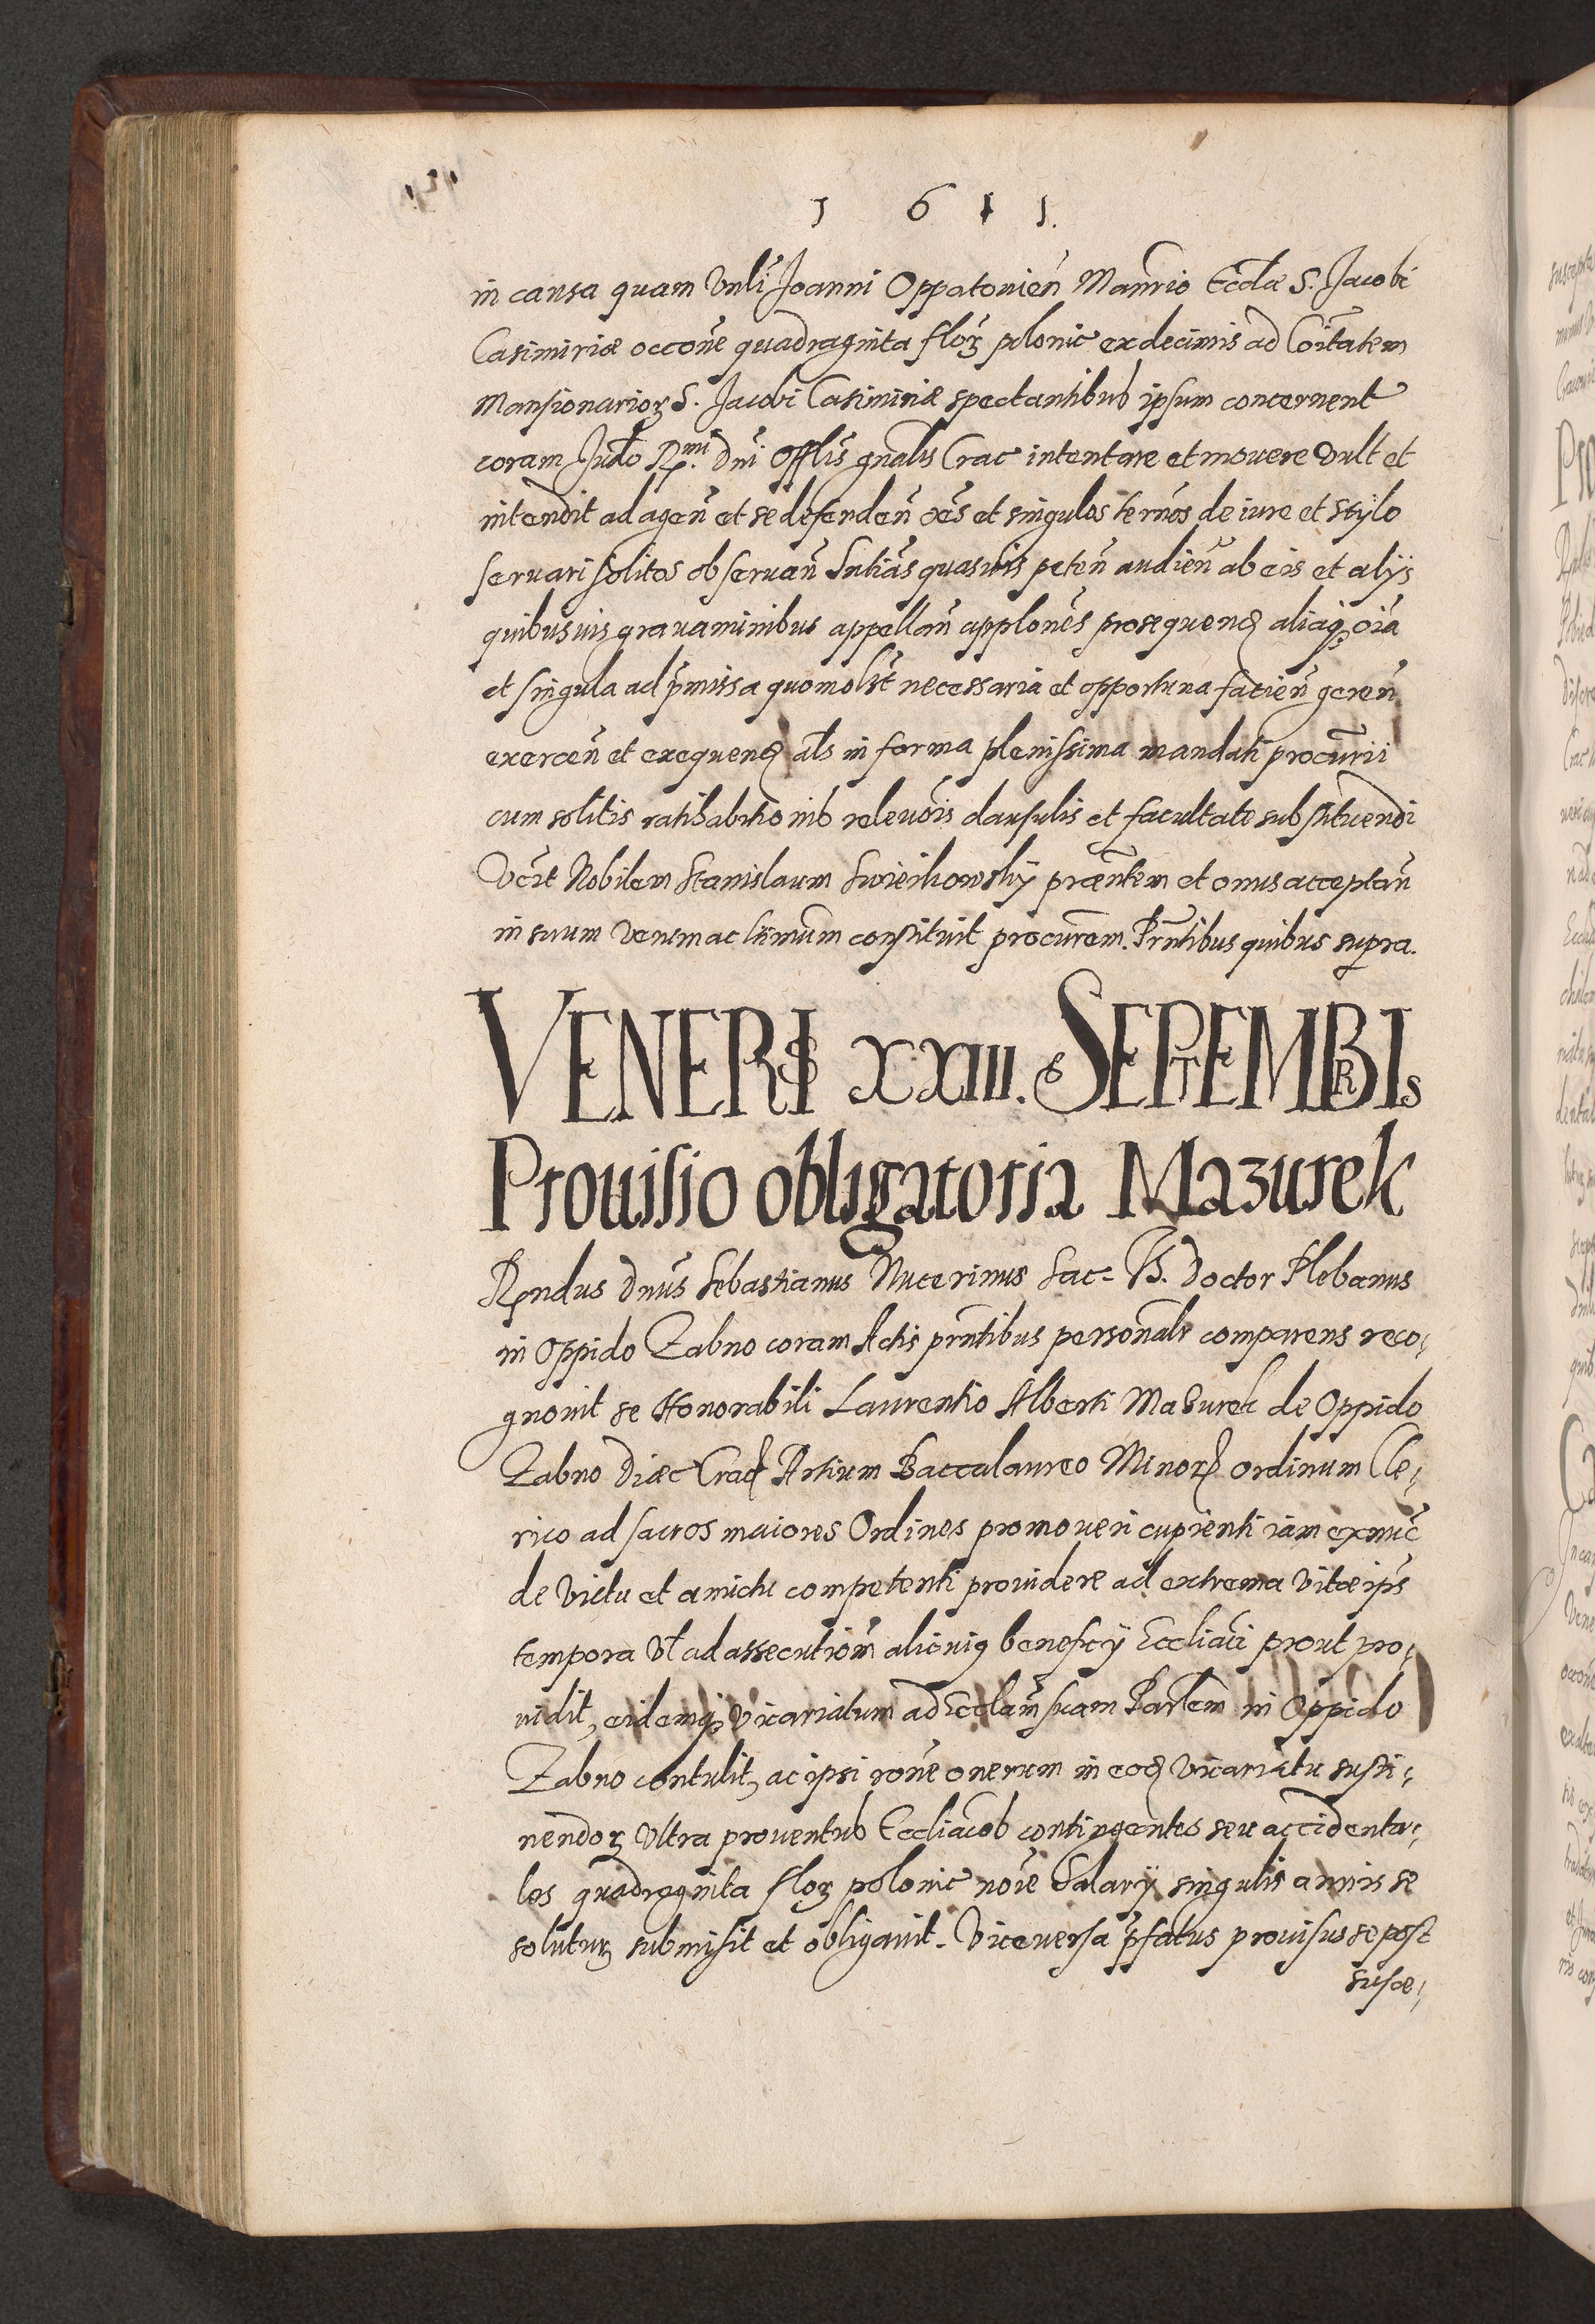 1 6 1 1.
in causa quam Vnli Joanni Oppatouien̄ Manrio Eccłæ S. Jacobi
Casimiriæ occōne quadraginta florꝫ polonic ex decimis ad Coītatem
Mansionariorꝫ S. Jacobi Casimiriæ spectantibus ipsum concernent
coram Judo Rmi Dni Offlis gnalis Crac intentare et mouere vult et
intendit ad agen̄ et se defenden̄ oēs et singulos ternōs de iure et stÿlo
seruari solitos obseruan̄ Sntiās quasuis peten̄ audien̄ ab eis et alÿs
quibusuis grauaminibus appellan̄ applonēs prosequenđ aliaqꝫ oīa
et singula ad p̄missa quomolt necessaria et opportuna facien̄ geren̄
exercen̄ et exequenđ als in forma plenissima mandati procurii
cum solitis ratihabitionib relevōis clausulis et facultate substituendi
Vēit Nobilem Stanislaum Swieikowskÿ præntem et onus acceptan̄
in suum verum ac ltimum constituit procurem. Prntibus quibus supra.
VENERIS XXIII. SEPTEMBRIS
Prouisio obligatoria Mazurek
Rndus Dnus Sebastianus Nucerinus Sac= Th. Doctor Plebanus
in Oppido Zabno coram Actis prntibus personalr comparens reco¡
gnouit se Honorabili Laurentio Alberti Mazurek de Oppido
Zabno Diæc Crac Artium Baccalaureo Minorꝫ ordinum Cle¡
rico ad sacros maiores Ordines promoueri cupienti iam ex nuc̄
de victu et amictu competenti prouidere ad extrema vitæ ips̄
tempora vł ad assecutiōm alicuiꝰ beneficÿ Eccliaci prout pro¡
uidit, eidemqꝫ vicariatum ad Ecclam̄ suam Parlem in Oppido
Zabno contulit, ac ipsi rōne onerum in eođ vicariatu susti¡
nendorꝫ vltra prouentus Eccliacos contingentes seu accidenta¡
les quadraginta florꝫ polonic noīe Salarÿ singulis annis se
soluturꝫ submisit et obligauit. Viceuersa p̄fatus prouisus se post
susce¡